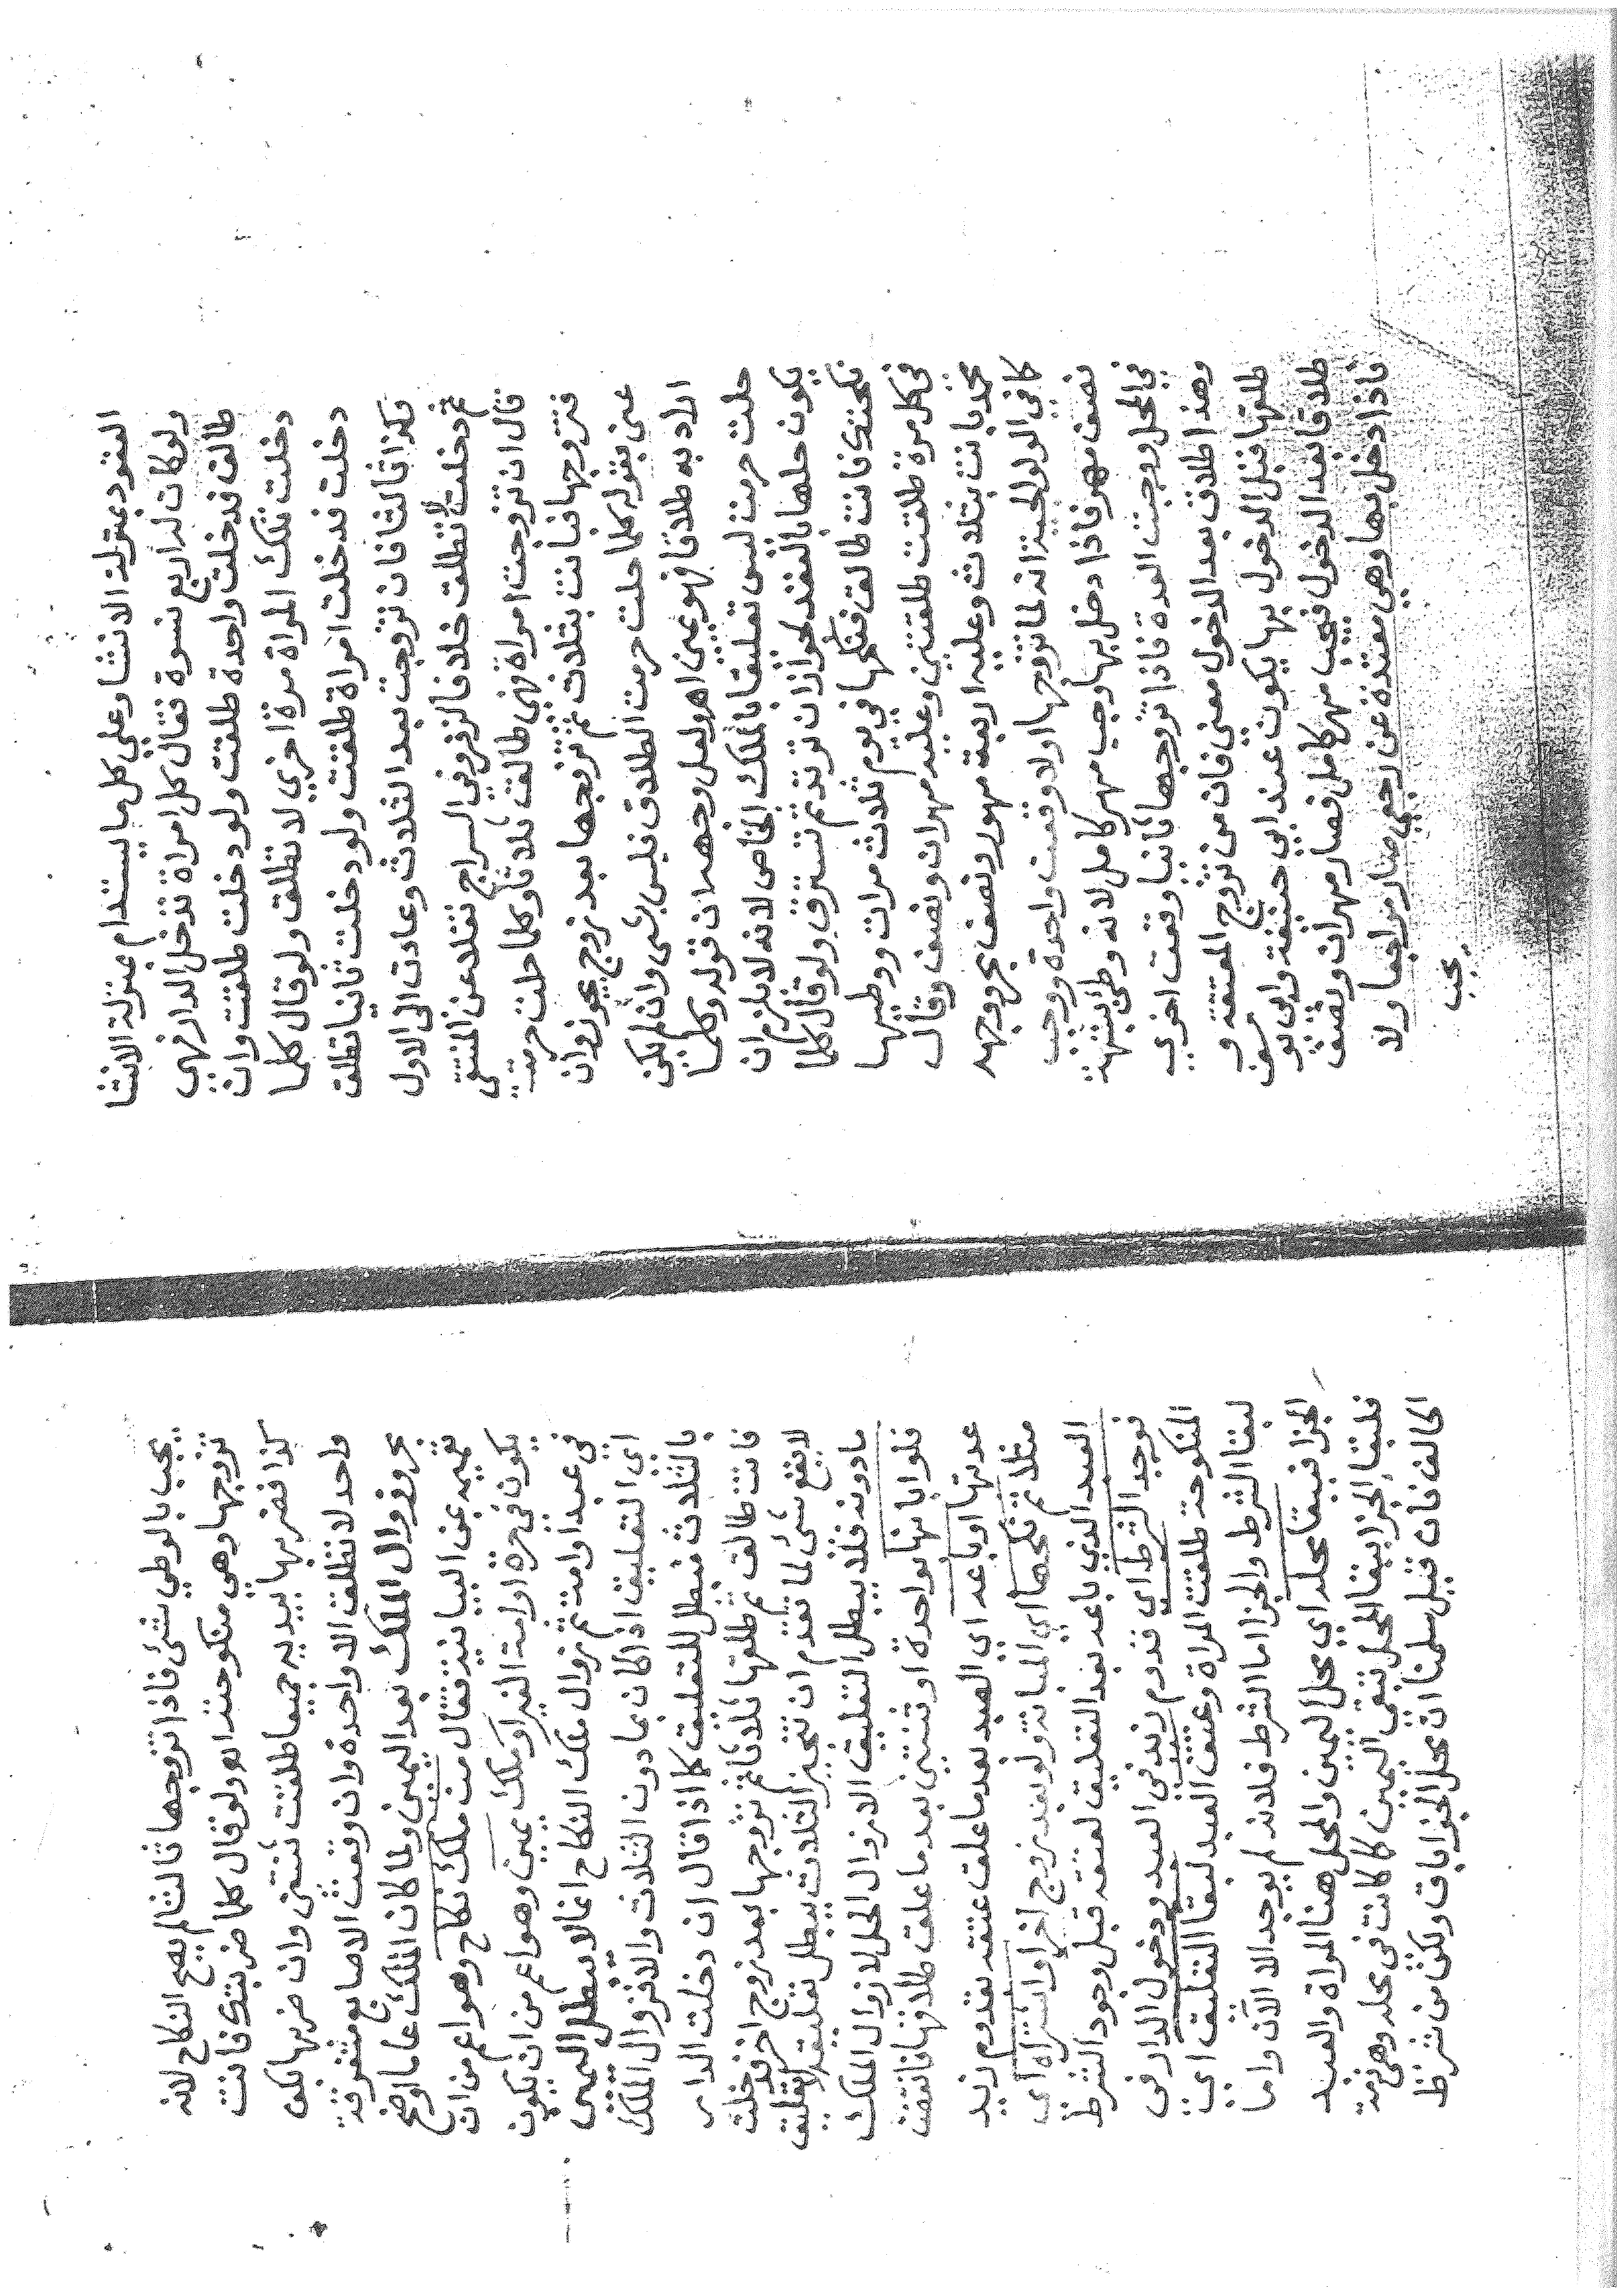 العقود بمنزلة الانشا وعلي كل ما يستدام بمنزلة الانشا
ولو كات له اربع نسوة فقال كل امراة تدخل الدار فهى
طالق فدخلت واحدة طلقت ولو دخلت طلقت وان
دخلت تلك المراة مرة اخري لا تطلق ولو قال كلما
دخلت فدخلت امراة طلقت ولو دخلت ثانيا تطلق
وكذا ثالثا فان تزوجت بعد الثلاث وعادت الى الاول
ثم دخلت لا تطلق خلافا لزفر وفي السراج نقلا عن المنتقى
قال ان تزوجت امراة فهى طالق ثلاثا وكلما حلت حرمت
فتزوجها فبانت بثلاث ثم تزوجها بعد زوج يجوز وان
عنى بقوله كلما حلت حرمت الطلاق فليس بشى وان لم يكن
اراد به طلاقا فهو يمين اهـ ولعل وجهه ان قوله وكلما
حلت حرمت ليس تعليقا بالملك الخاص لانه لا يلزم ان
يكون حلها بالعقد لجواز ان ترتد ثم تسترق ولو قال كلما
نكحتك فانت طالق فنكحها في يوم ثلاث مرات ووطيها
فى كل مرة طلقت طلقتين وعليه مهران ونصف وقال
محمد بانت بثلاث وعليه اربعة مهور ونصف نحر ووجهه
كما في الولوالجية انه لما تزوجها اولا وقعت واحدة ووجب
نصف مهر فاذا دخل بها وجب مهر كامل لانه وطئ بشبهة
في المحل ووجبت العدة فاذا تزوجها ثانيا وقعت اخري
وهذا طلاق بعد الدخول معني فان من تزوج المعتدة و
طلقها قبل الدخول بها يكون عند ابي حنيفة وابي يوسف
طلاقا بعد الدخول فيجب مهر كامل فصار مهران ونصف
فاذا دخل بها وهي معتدة عن رجعي صار مراجعا ولا
يجب
يجب بالوطي شئ فاذا تزوجها ثالثا لم يصح النكاح لانه
تزوجها وهي منكوحته اهـ ولو قال كلما ضربتك فانت
كذا فضربها بيديه جميعا طلقت ثنتين وان ضربها بكف
واحد لا تطلق الا واحدة وان وقعت الاصابع متفرقة
بحر وزوال الملك بعد اليمين ولما كان الملك عاما اوضح
تعميمه بمن البيانية فقال من ملك نكاح وهو اعم من ان
يكون في حرة او امة الغير او ملك يمين وهو اعم من ان يكون
في عبد او امة ثم زوال ملك النكاح انما لا يبطل اليمين
اي التعليق اذا كان بما دون الثلاث والا فزوال الملك
بالثلاث مبطل للتعليق كما اذا قال ان دخلت الدار
فانت طالق ثم طلقها ثلاثا ثم تزوجها بعد زوج اخر فدخلت
لا يقع شئ لما تقدم ان تنجيز الثلاث يبطل تعليقه لا تعليق
ما دونه فلا يبطل التعليق الا زوال المحل لا زوال الملك
فلو ابانها بواحدة او ثنتين بعد ما علق طلاقها فانقضت
عدتها او باعه اي العبد بعد ما علق عتقه بقدوم زيد
مثلا ثم نكحها اي المبانة ولو بعد زوج اخر او اشتراه اي
العبد الذي باعه بعد التعليق لعتقه قبل وجود الشرط
فوجد الشرط اي قدم زيد في العبد ودخول الدار فى
المنكوحة طلقت المراة وعتق العبد لبقا التعليق اي
لبقا الشرط والجزا اما الشرط فلانه لم يوجد الا الآن واما
الجزا فببقا محله اي محل اليمين والمحل هنا المراة والعبد
فلبقا الجزا ببقا المحل تبقى اليمين كما كانت في محله وهى ذمة
الحالف فان قيل سلمنا ان محل الجزا باق ولكن من شرط